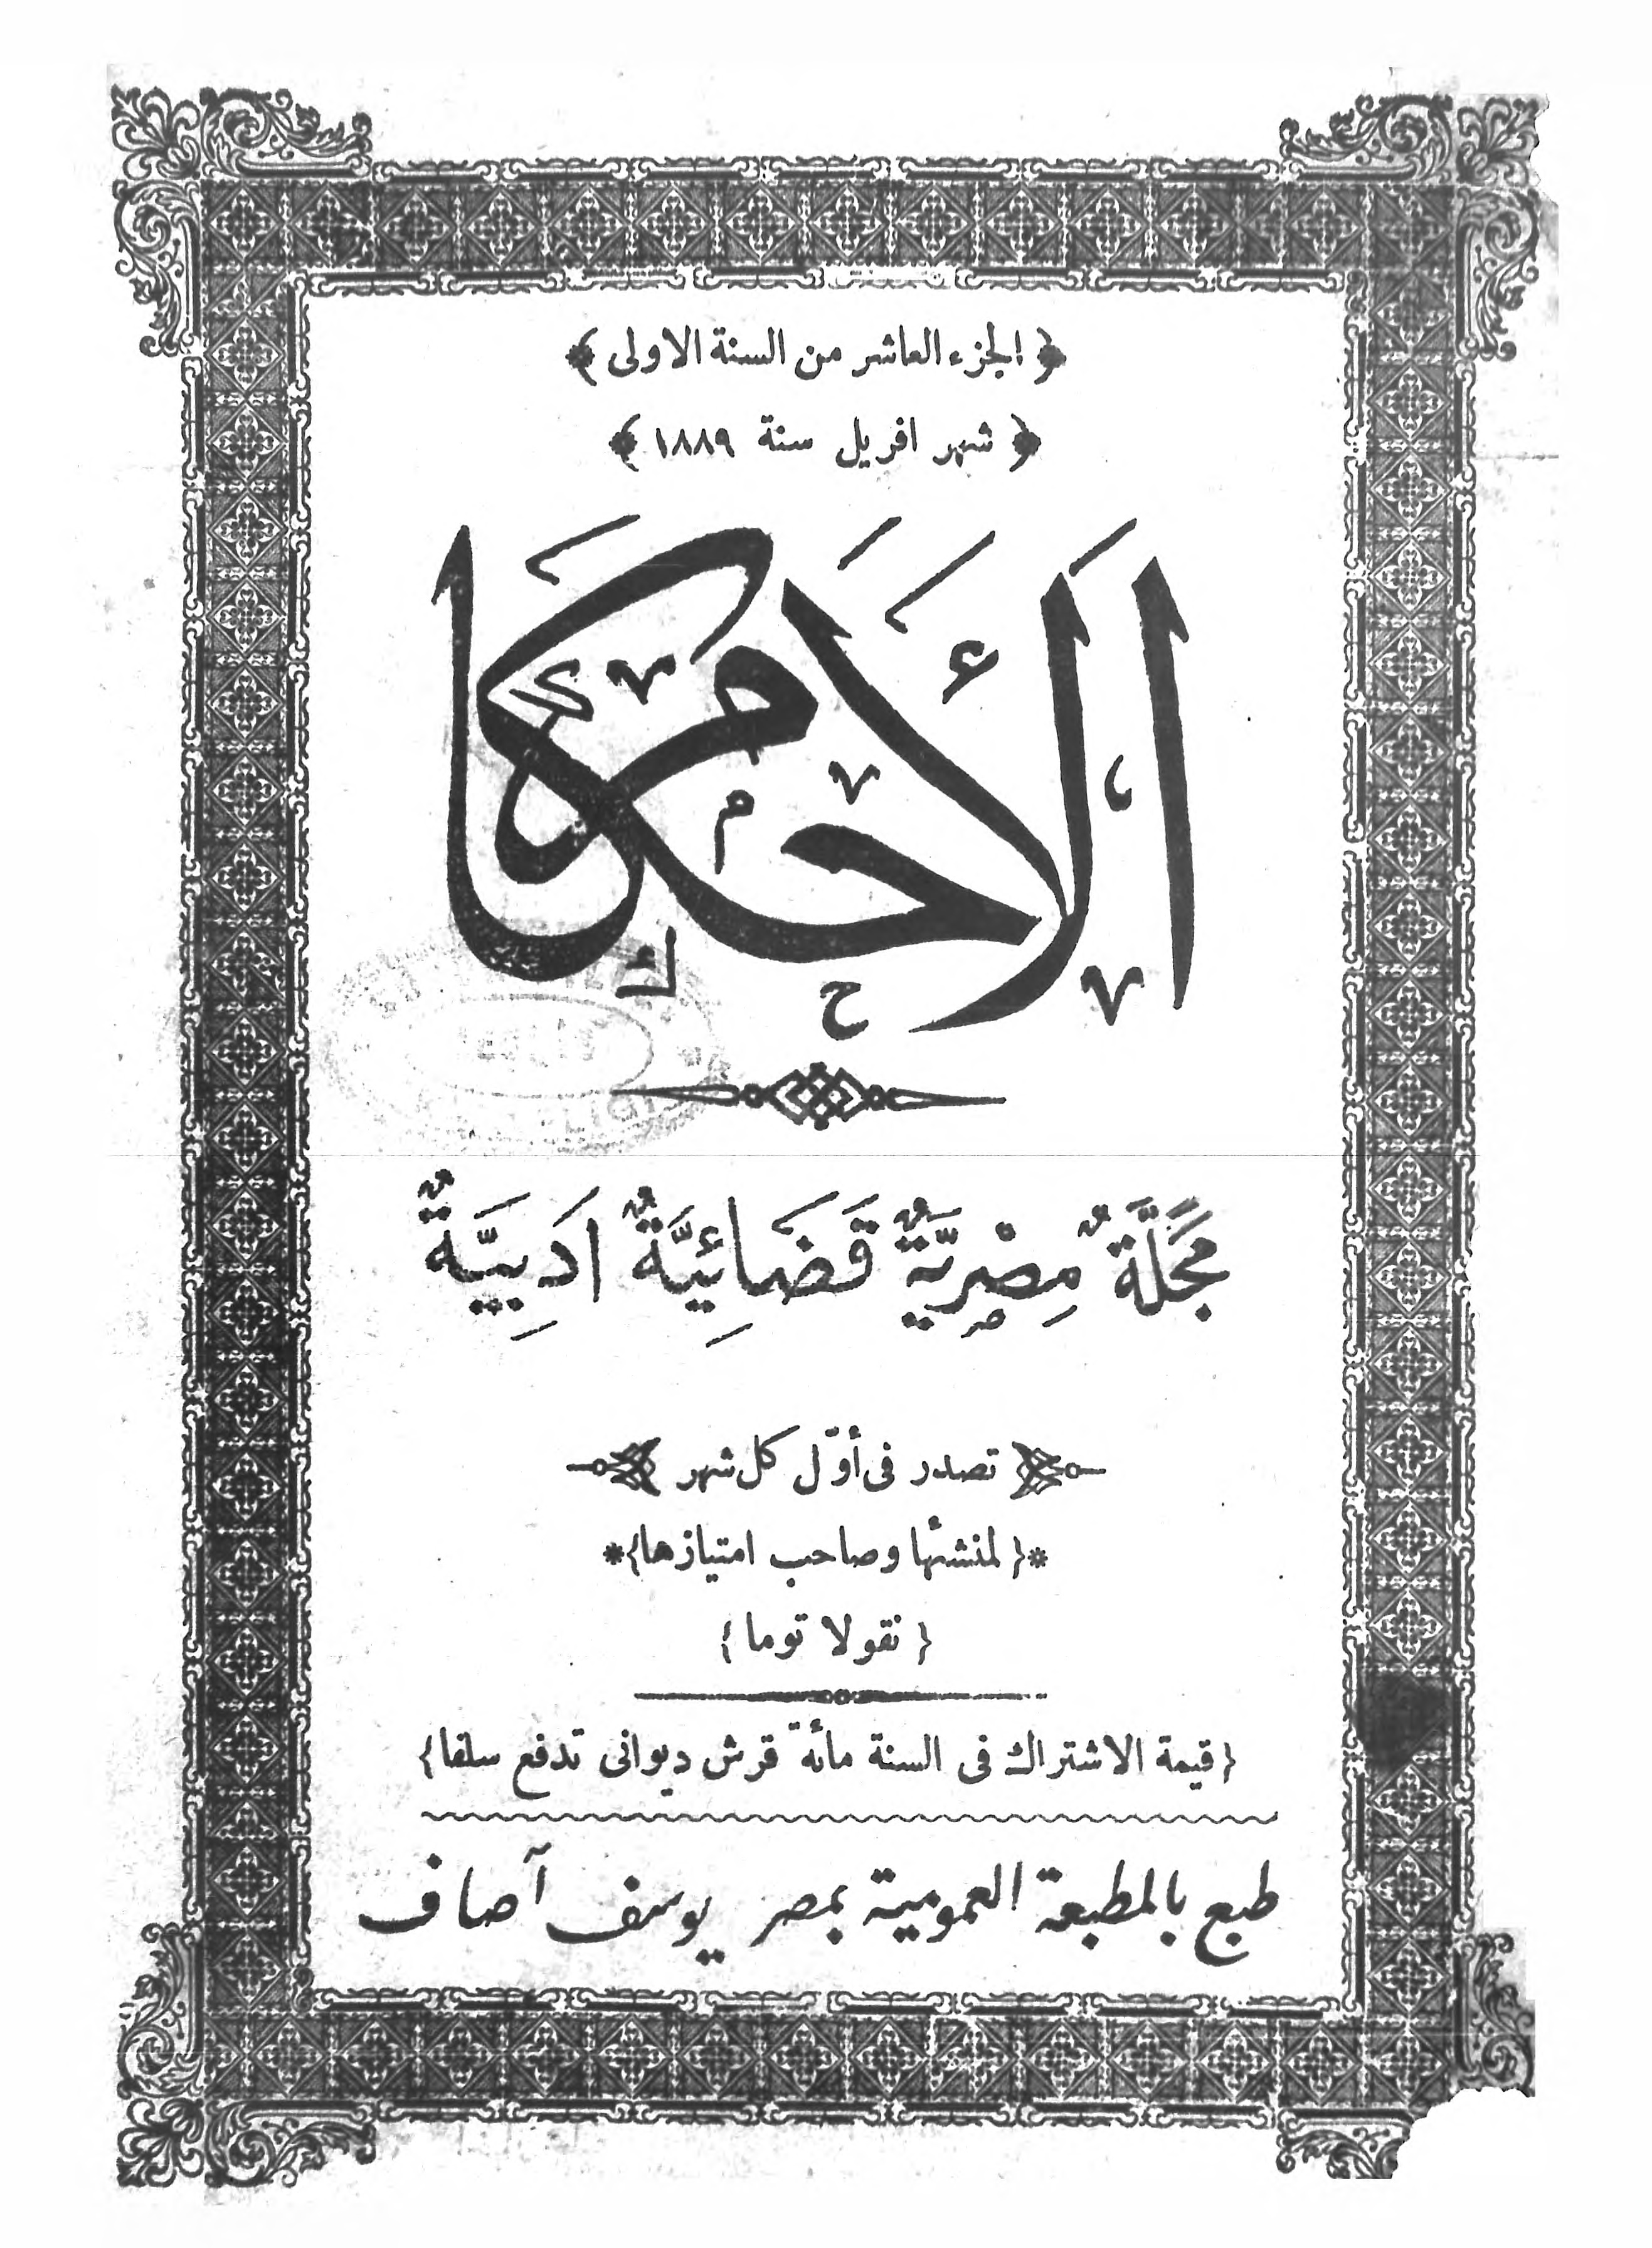 ﴿ الجزء العاشر من السنة الاولى ﴾
﴿ شهر افريل سنة ١٨٨٩ ﴾
الأحكام
مَجَلَّةٌ مِصْرِيَّةٌ قَضَائِيَّةٌ اَدَبِيَّةٌ
تصدر فى أوّل كل شهر
*{ لمنشئها وصاحب امتيازها }*
{ نقولا توما }
{ قيمة الاشتراك فى السنة مائة قرش ديوانى تدفع سلفا }
طبع بالمطبعة العمومية بمصر يوسف آصاف